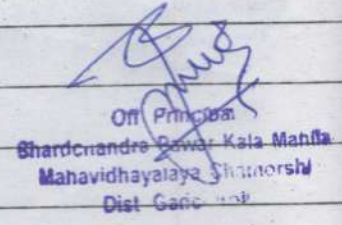 Off Principal
Shardchandra Pawar Kala Mahila
Mahavidhayalaya Chamorshi
Dist